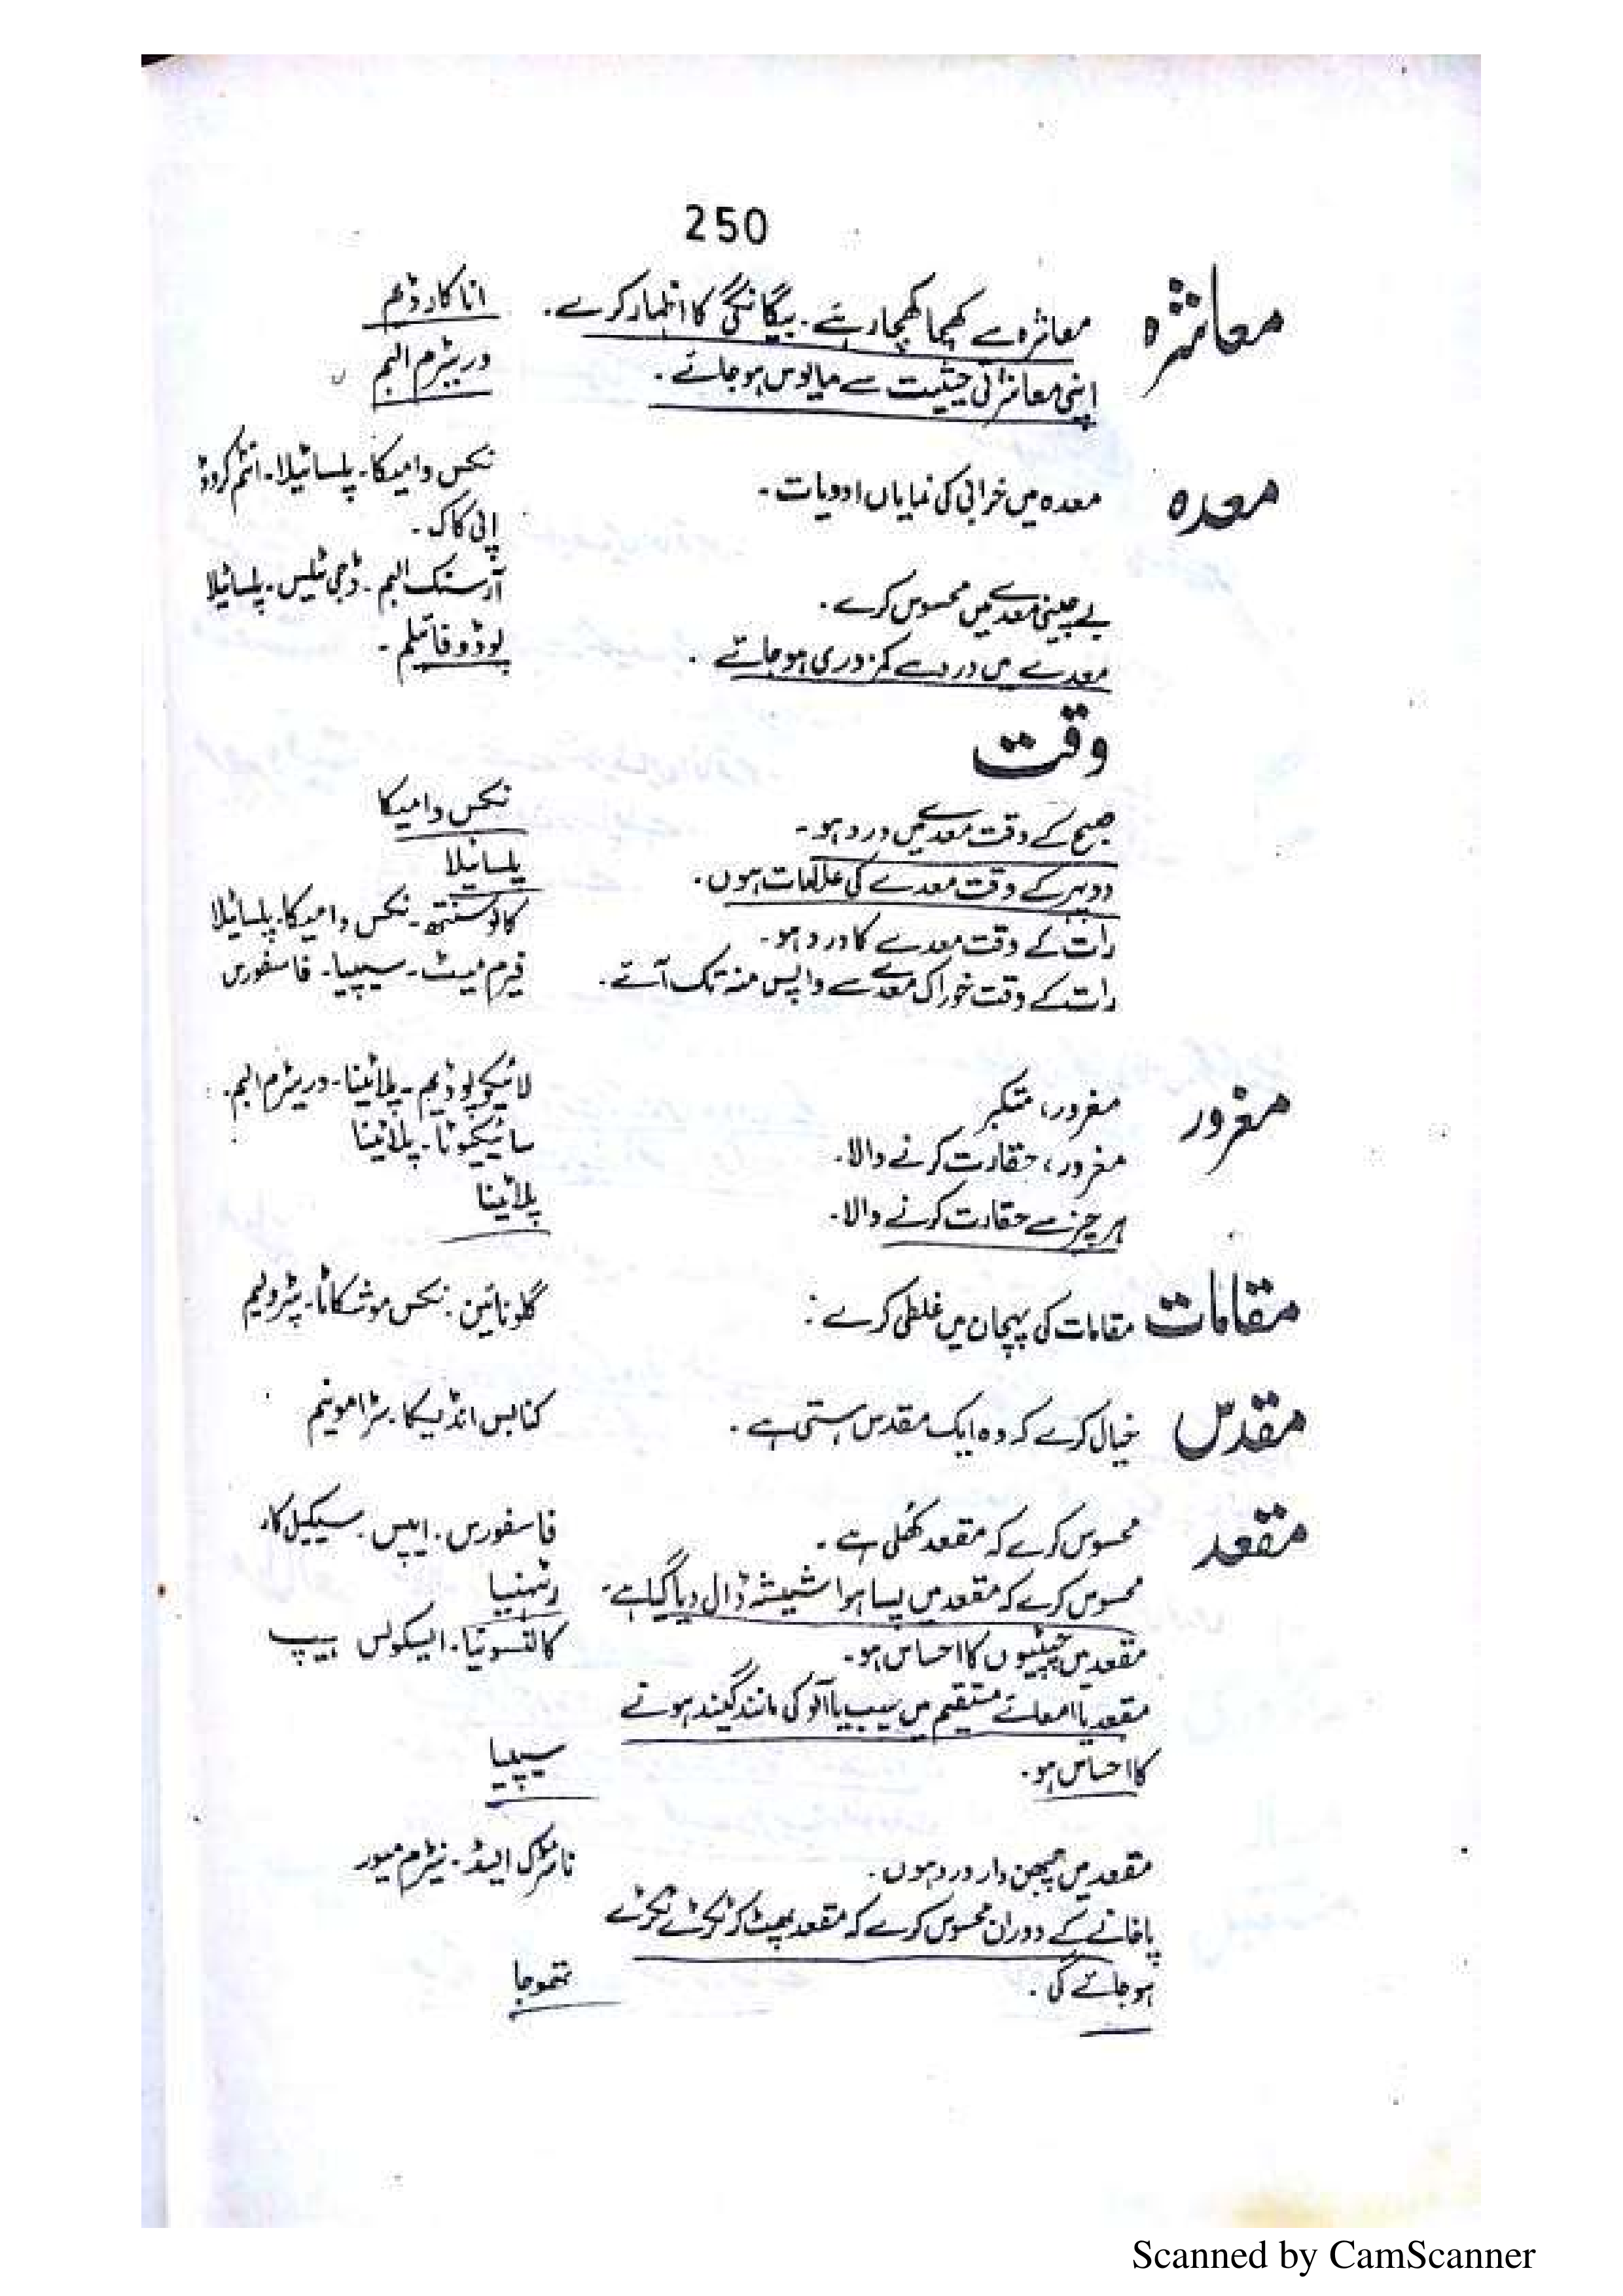 250
معاشرہ معاشرہ سے کھچا کھچا رہے۔ بیگانگی کا اظہار کرے۔ انا کارڈیم
اپنی معاشرتی حیثیت سے مایوس ہو جائے۔ وریٹرم البم
معدہ معدہ میں خرابی کی نمایاں ادویات۔ نکس وامیکا۔ پلساٹیلا۔ انٹم کروڈ
اپی کاک۔
بے چینی معدے میں محسوس کرے۔ آرسنک البم۔ ڈجی ٹیلس۔ پلساٹیلا
معدے میں درد سے کمزوری ہو جائے۔ پوڈوفائیلم۔
وقت
صبح کے وقت معدے میں درد ہو۔ نکس وامیکا
دوپہر کے وقت معدے کی علامات ہوں۔ پلساٹیلا
رات کے وقت معدے کا درد ہو۔ کالوسنتھ۔ نکس وامیکا۔ پلساٹیلا
رات کے وقت خوراک معدے سے واپس منہ تک آئے۔ فیرم میٹ۔ سیپیا۔ فاسفورس
مغرور مغرور، متکبر لائیکوپوڈیم۔ پلاٹینا۔ وریٹرم البم۔
مغرور، حقارت کرنے والا۔ سائیکیوٹا۔ پلاٹینا
ہر چیز سے حقارت کرنے والا۔ پلاٹینا
مقامات مقامات کی پہچان میں غلطی کرے: گلونائین۔ نکس موشکاٹا۔ پٹرولیم
مقدس خیال کرے کہ وہ ایک مقدس ہستی ہے۔ کنابس انڈیکا۔ سٹرامونیم
مقعد محسوس کرے کہ مقعد کھلی ہے۔ فاسفورس۔ ایپس۔ سیکیل کار
محسوس کرے کہ مقعد میں پسا ہوا شیشہ ڈال دیا گیا ہے۔ رٹہنیا
مقعد میں کا احساس ہو۔ کالنسونیا۔ ایسکولس ہیپ
مقعد یا امعائے مستقیم میں سیب یا آلو کی مانند گیند ہونے
کا احساس ہو۔ سیپیا
مقعد میں چبھن دار درد ہوں۔ نائٹرک ایسڈ۔ نیٹرم میور
پاخانے کے دوران محسوس کرے کہ مقعد پھٹ کر ٹکڑے ٹکڑے
ہو جائے گی۔ تھوجا
Scanned by CamScanner